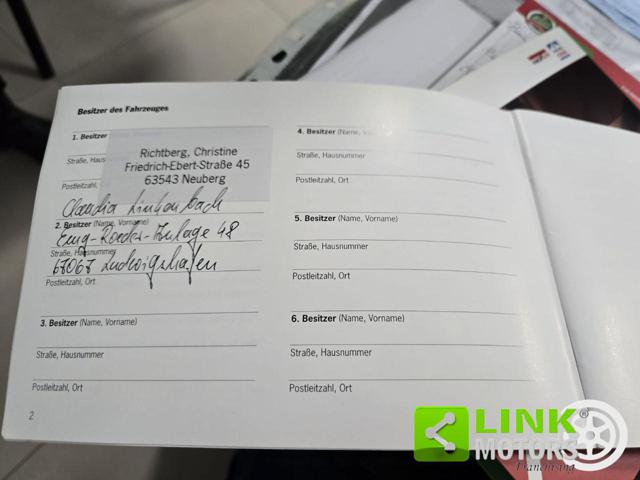 Besitzer des Fahrzeuges
1. Besitzer
Richtberg, Christine
Straße, Hausn
Friedrich-Ebert-Straße 45
Postleitzahl,
63543 Neuberg
Claudia
2. Besitzer (Name, Vorname)
Anlage 48
Straße, Hausnummer
67067 Ludwigshafen
Postleitzahl, Ort
3. Besitzer (Name, Vorname)
Straße, Hausnummer
Postleitzahl, Ort
2
4. Besitzer (Name, Vorname)
Straße, Hausnummer
Postleitzahl, Ort
5. Besitzer (Name, Vorname)
Straße, Hausnummer
Postleitzahl, Ort
6. Besitzer (Name, Vorname)
Straße, Hausnummer
Postleitzahl, Ort
LINK
MOTORS
Franchising